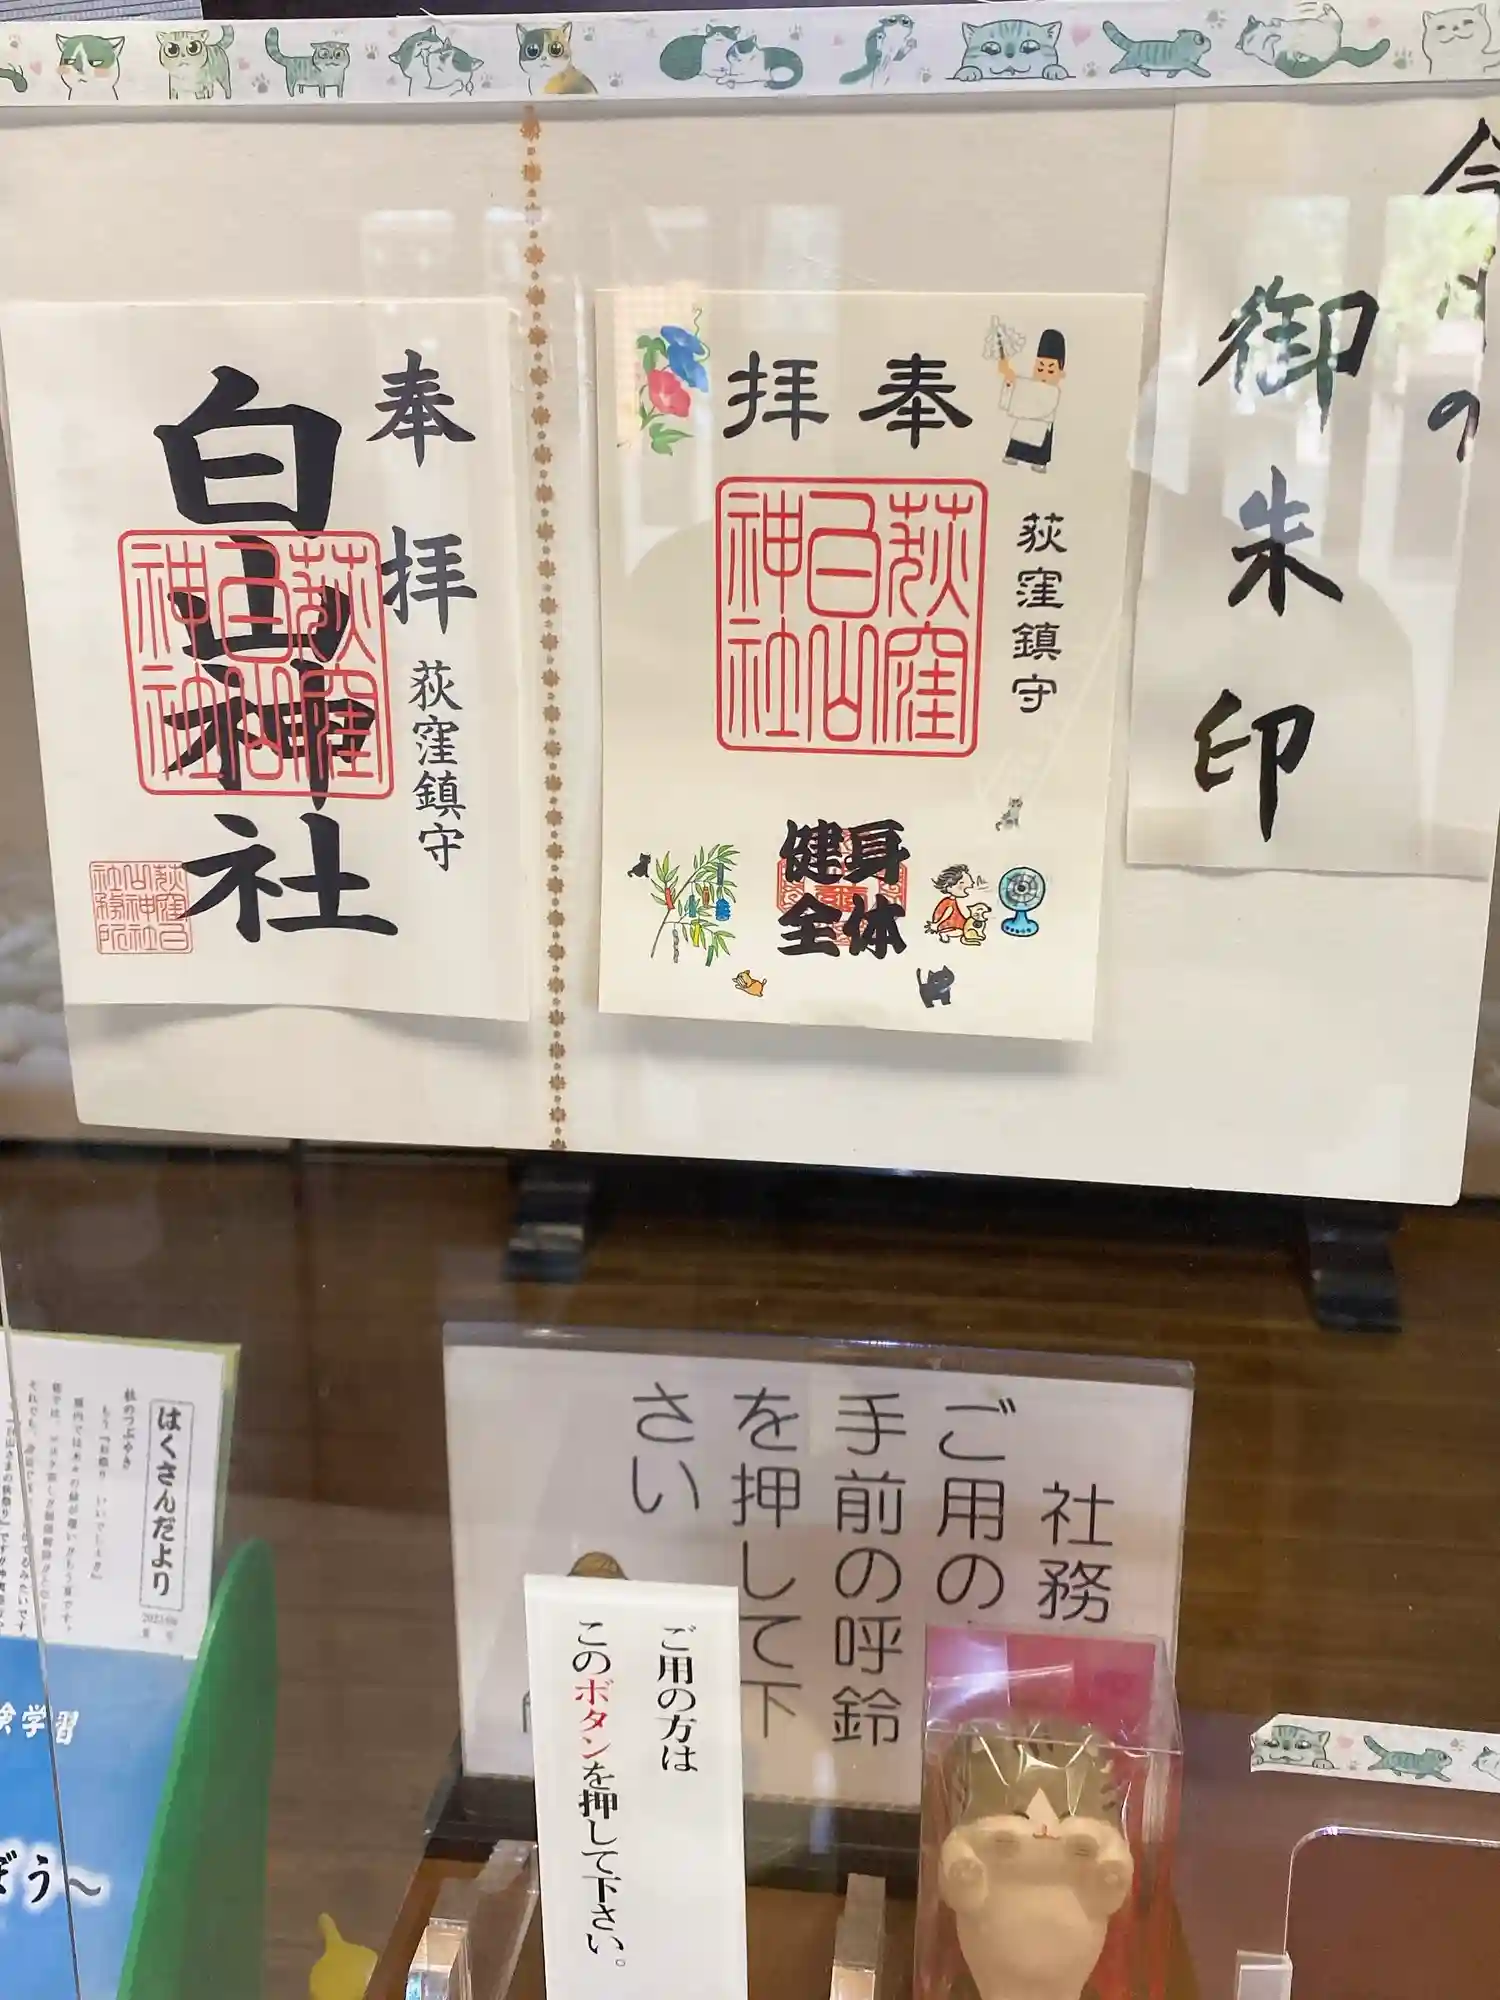 今月の
御朱印
奉拝
荻窪白山神社
荻窪鎮守
健身
全体
奉拝
荻窪鎮守
白山神社
荻窪白山神社
荻窪白山神社社務所
社務
ご用の
手前の呼鈴
を押して下
さい
ご用の方は
このボタンを押して下さい。
はくさんだより
杜のつぶやき
学習
ぼう〜